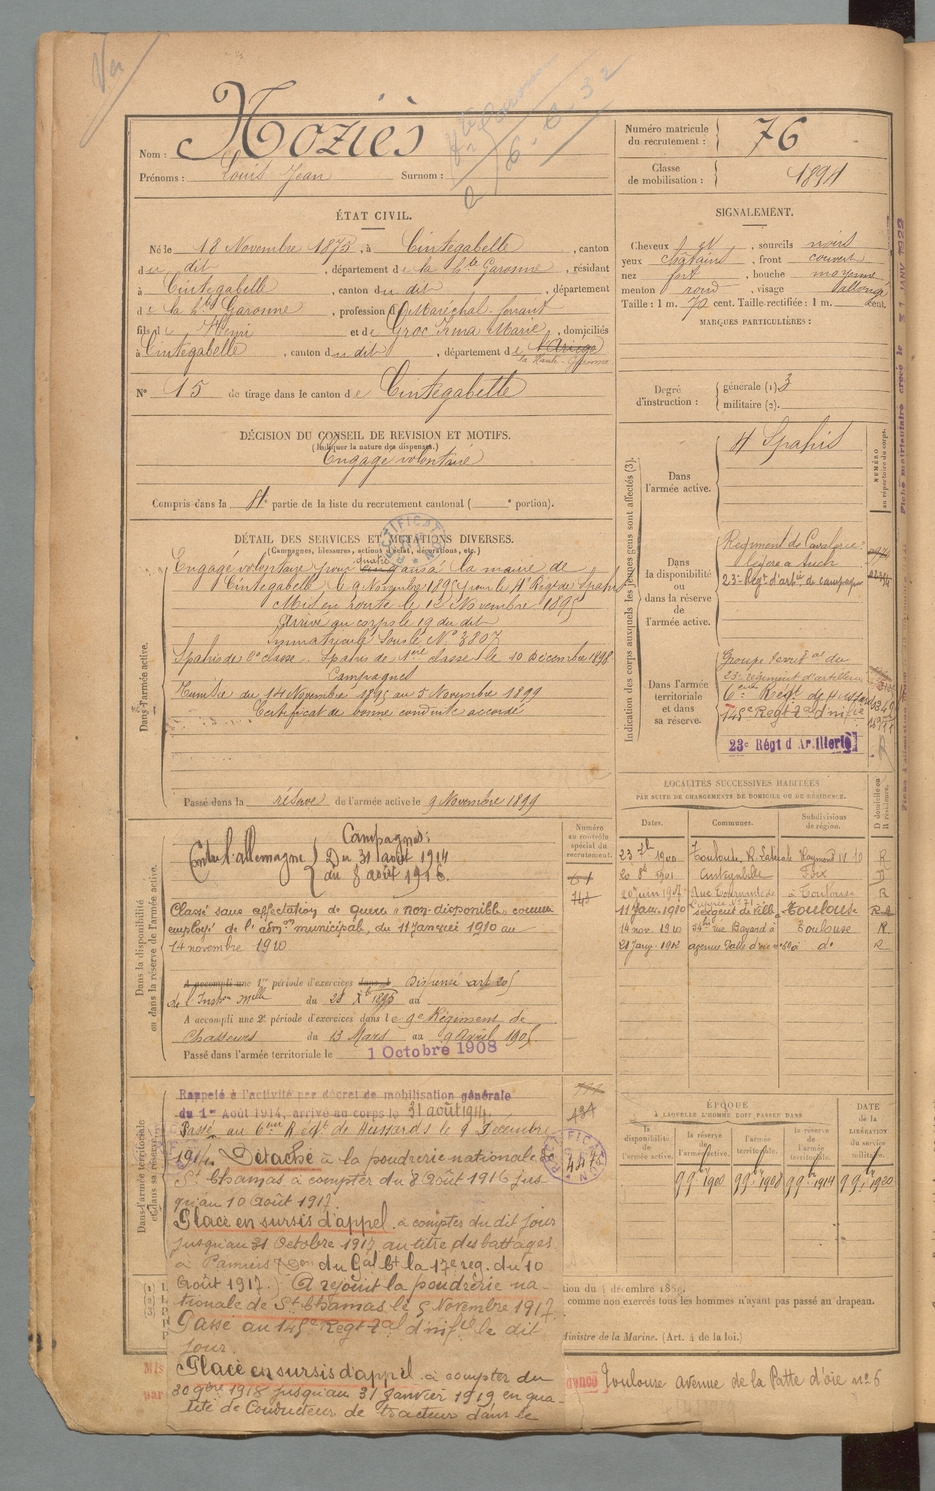 Nom : Moziès
Prénoms : Louis Jean Surnom :
Numéro matricule du recrutement : 76
Classe de mobilisation : 1894
ÉTAT CIVIL.
Né le 18 Novembre 1875, à Cintegabelle, canton
du dit, département de la Hte Garonne, résidant
à Cintegabelle, canton du dit, département
de la Hte Garonne, profession de Maréchal ferrant
fils de Henri et de Groc Irma Marie, domiciliés
à Cintegabelle, canton du dit, département de l'Ariège
la Haute-Garonne
N° 15 de tirage dans le canton de Cintegabelle
SIGNALEMENT.
Cheveux, sourcils noirs
yeux chatains, front couvert
nez fort, bouche moyenne
menton rond, visage
Taille : 1 m. 70 cent. Taille rectifiée : 1 m. cent.
MARQUES PARTICULIÈRES :
Degré d'instruction : générale (1) 3
militaire (2).
DÉCISION DU CONSEIL DE REVISION ET MOTIFS.
(Indiquer la nature des dispenses.)
Engagé volontaire
Compris dans la 4e partie de la liste du recrutement cantonal ( e portion).
DÉTAIL DES SERVICES ET MUTATIONS DIVERSES.
(Campagnes, blessures, actions d'éclat, décorations, etc.)
Dans l'armée active.
Engagé volontaire pour quatre ans à la mairie de
Cintegabelle, le 9 Novembre 1895 pour le 4e Régt de Spahis
Mis en route le 12 Novembre 1895
Arrivé au corps le 19 du dit
Immatriculé sous le N° 3807
Spahis de 2e classe. Spahis de 1ère classe le 10 Décembre 1898
Campagnes
du 14 Novembre 1895 au 5 Novembre 1899
Certificat de bonne conduite accordé
Passé dans la réserve de l'armée active le 9 Novembre 1899
Indication des corps auxquels les jeunes gens sont affectés (3).
Dans l'armée active.
4 Spahis
NUMÉRO au répertoire du corps.
Dans la disponibilité ou dans la réserve de l'armée active.
Régiment de Cavalerie
légère à Auch
23e Régt d'artie de campagne
Dans l'armée territoriale et dans sa réserve.
Groupe territal du
23e régiment d'artillerie
6ème Régt de Hussards
145e Regt Tal d'infie
23e Régt d'Artillerie
LOCALITÉS SUCCESSIVES HABITÉES
PAR SUITE DE CHANGEMENTS DE DOMICILE OU DE RÉSIDENCE.
Dates. Communes. Subdivisions de région. D domicile ou R résidence.
1900 Toulouse, R. Raymond IV 10 R
20 8bre 1901 Cintegabelle Foix D
20 juin 1907 à Toulouse R
11 Janv. 1910 sergent de ville Toulouse R
14 nov. 1910 rue Bayard à Toulouse R
21 Janv. 1912 avenue Patte d'oie n° 6 à do R
Dans la disponibilité ou dans la réserve de l'armée active.
Numéro au contrôle spécial du recrutement.
Campagnes:
Contre l'allemagne { Du 31 août 1914
au 8 août 1916.
Classé sans affectation de guerre "non-disponible" comme
employé de l'admon municipal, du 11 janvier 1910 au
14 novembre 1910
A accompli une 1re période d'exercices dans l Dispensé art 205
de l'Instron Melle du 28 Xbre 1895 au
A accompli une 2e période d'exercices dans le 9e Régiment de
Chasseurs du 13 Mars au 9 Avril 1905
Passé dans l'armée territoriale le 1 Octobre 1908
Dans l'armée territoriale et dans sa réserve.
Rappelé à l'activité par décret de mobilisation générale
du 1er Août 1914, arrivé au corps le 31 août 1914.
Passé au 6ème Régt de Hussards le 9 Décembre
1914. Détaché à la poudrerie nationale
St Chamas à compter du 8 Août 1916 jus
qu'au 10 Août 1917.
Placé en sursis d'appel à compter du dit jour
jusqu'au 31 Octobre 1917 au titre des battages
à Pamiers (Don du Gal Ct la 17e reg. du 10
Août 1917.) A rejoint la poudrerie na-
tionale de St Chamas le 5 Novembre 1917
Passé au 145e Regt Tal d'infie le dit
jour.
Placé en sursis d'appel à compter du
30 9bre 1918 jusqu'au 31 Janvier 1919 en qua-
lité de Conducteur de tracteur dans le
ÉPOQUE
À LAQUELLE L'HOMME DOIT PASSER DANS
la disponibilité de l'armée active.
la réserve de l'armée active.
l'armée territoriale.
la réserve de l'armée territoriale.
DATE de la LIBÉRATION du service militaire.
9 9bre 1908
9 9bre 1914
9 9bre 1920
comme non exercés tous les hommes n'ayant pas passé au drapeau.
Ministre de la Marine. (Art. 4 de la loi.)
Toulouse avenue de la Patte d'oie n° 6